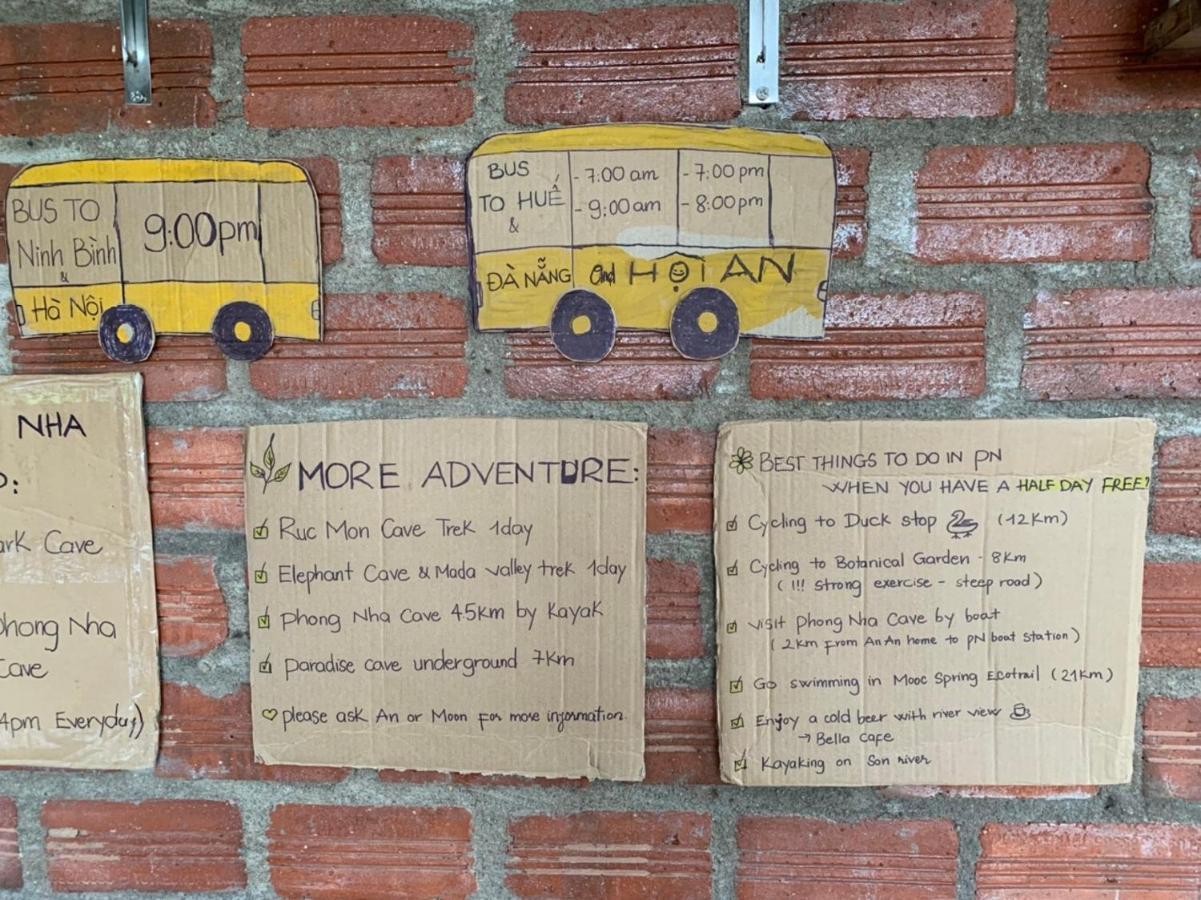 BUS TO
Ninh Bình
&
Hà Nội
9:00pm
BUS
TO HUẾ
&
- 7:00 am
- 9:00 am
- 7:00 pm
- 8:00 pm
ĐÀ NẴNG and HỘI AN
NHA
ark Cave
Phong Nha
Cave
4pm Everyday)
MORE ADVENTURE:
Ruc Mon Cave Trek 1day
Elephant Cave & Mada valley trek 1day
Phong Nha Cave 4.5km by Kayak
paradise cave underground 7km
please ask An or Moon for more information
BEST THINGS TO DO IN PN
WHEN YOU HAVE A HALF DAY FREE?
Cycling to Duck stop (12Km)
Cycling to Botanical Garden - 8Km
( !!! strong exercise - steep road )
visit phong Nha Cave by boat
( 2km from An An home to PN boat station )
Go swimming in Mooc Spring Ecotrail (21Km)
Enjoy a cold beer with river view
→ Bella Cafe
Kayaking on Son river